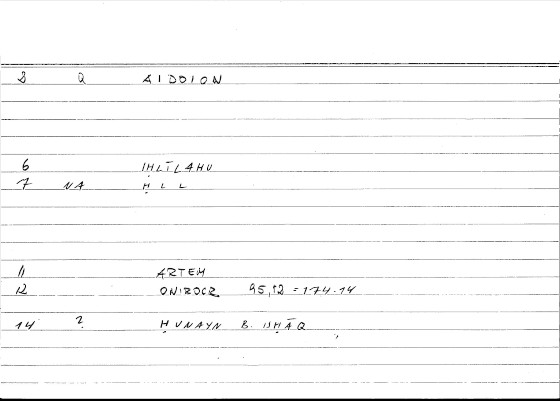 2 Q AIDOION
6 IḤLĪLAHU
7 NA Ḥ L L
11 ARTEM
12 ONIROCR 95,12 = 174.14
14 ? ḤUNAYN B. ISḤĀQ